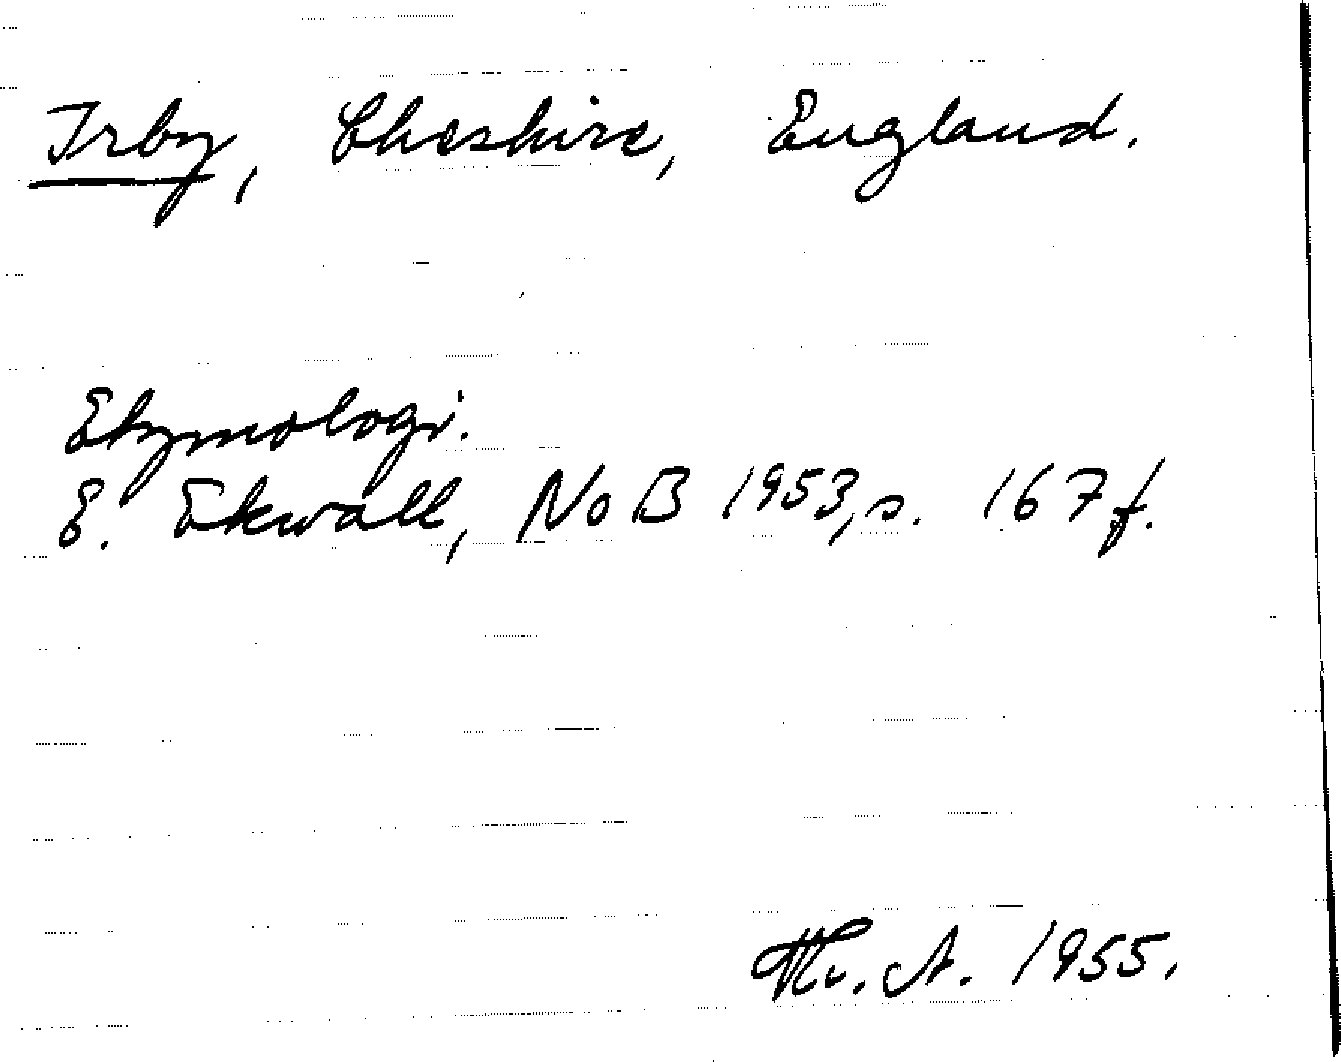 Irby, Cheshire, England.
Etymologi.
E. Ekwall, NoB 1953, s. 167 f.
Th. A. 1955.